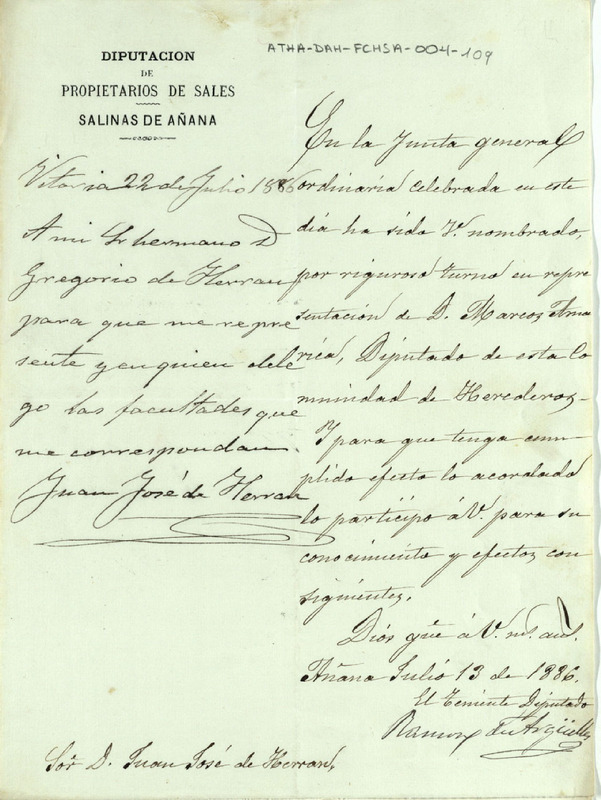 ATHA-DAH-FCHSA-004-109
DIPUTACION
DE
PROPIETARIOS DE SALES
SALINAS DE AÑANA
Vitoria 22 de Julio 1886
A mi Sr hermano D
Gregorio de Herran
para que me repre
sente y en quien dele
go las facultades que
me correspondan.
Juan José de Herran
En la Junta general
ordinaria celebrada en este
dia ha sido V. nombrado,
por riguroso turno en repre
sentación de D. Marcos Ama
rica, Diputado de esta Co
munidad de Herederos-
Y para que tenga cum-
plido efecto lo acordado
lo participo á V. para su
conocimiento y efectos con
siguientes.
Dios gue á V. ms. as.
Añana Julio 13 de 1886.
El Teniente Diputado
Ramon de Argüelles
Sor D. Juan José de Herran,